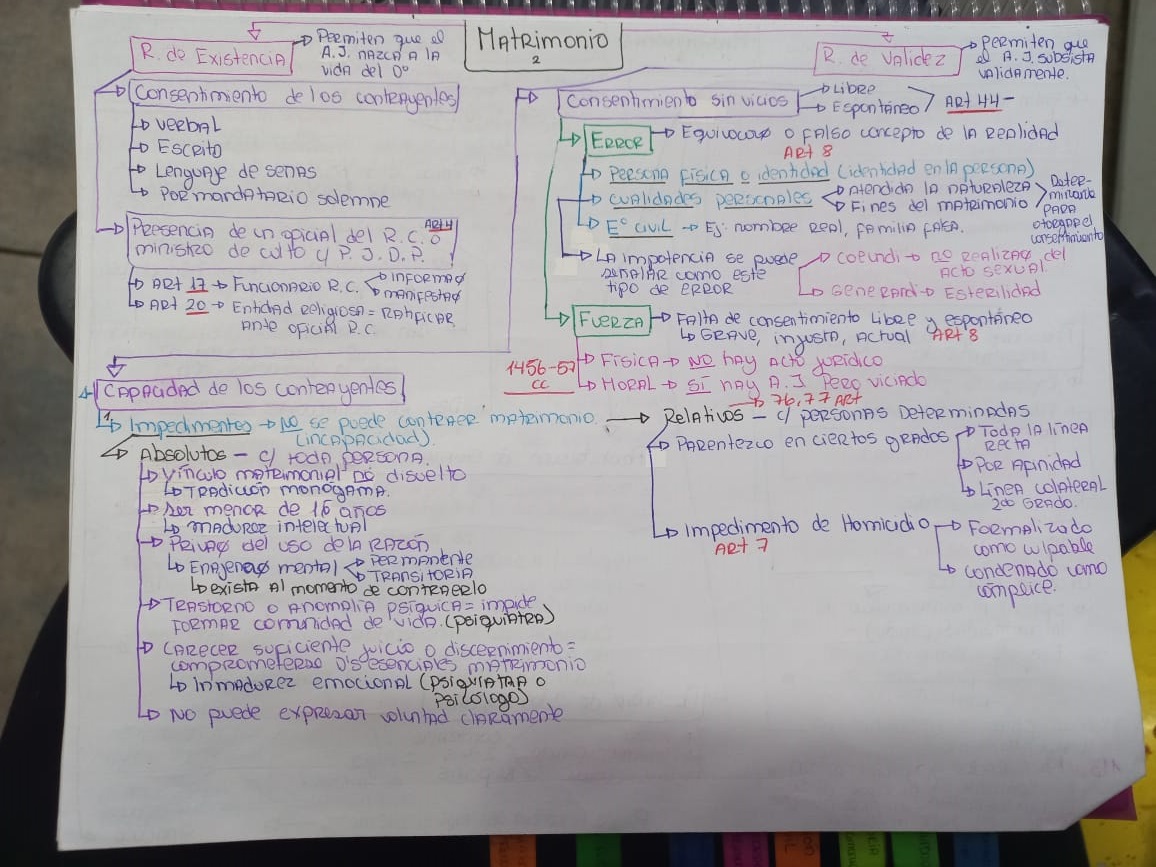 Matrimonio
2
R. de Existencia
Permiten que el
A.J. nazca a la
vida del Dº
R. de validez
permiten que
el A.J. subsista
validamente.
Consentimiento de los contrayentes
verbal
Escrito
Lenguaje de senas
Por mandatario solemne
Presencia de un oficial del R.C. o
Art 4
ministro de culto c/ P.J.D.P.
Art 17 → Funcionario R.C.
informaø
manifestaø
Art 20 → Entidad religiosa = Ratificar
Ante oficial R.C.
Consentimiento sin vicios
Libre
Espontáneo
Art 44 -
Error
Equivocaø o falso concepto de la realidad
Art 8
Persona física o identidad (identidad en la persona)
cualidades personales
Atendida la naturaleza
Fines del matrimonio
Deter-
minante
para
otorgar el
consentimiento
Eº civil → Ej: nombre real, familia falsa.
La impotencia se puede
señalar como este
tipo de error
coeundi → no realizaø del
acto sexual
Generandi → Esterilidad
Fuerza
Falta de consentimiento libre y espontáneo
Grave, injusta, actual
Art 8
1456-57
CC
Física → No hay acto jurídico
Moral → Sí hay A.J pero viciado
76,77 Art
Capacidad de los contrayentes
1. Impedimentos → No se puede contraer matrimonio
(incapacidad).
Absolutos - c/ toda persona.
Vínculo matrimonial no disuelto
Tradición monogama.
Ser menor de 16 años
madurez intelectual
Privaø del uso de la razón
Enajenaø mental
Permanente
Transitoria
exista al momento de contraerlo
Trastorno o anomalía psíquica = impide
formar comunidad de vida. (psiquiatra)
Carecer suficiente juicio o discernimiento =
comprometerse Dºs esenciales matrimonio
Inmadurez emocional (psiquiatra o
psicólogo)
No puede expresar voluntad claramente
Relativos - c/ personas determinadas
Parentezco en ciertos grados
Toda la línea
recta
Por afinidad
Línea colateral
2do grado.
Impedimento de Homicidio
Art 7
Formalizado
como culpable
condenado como
cómplice.